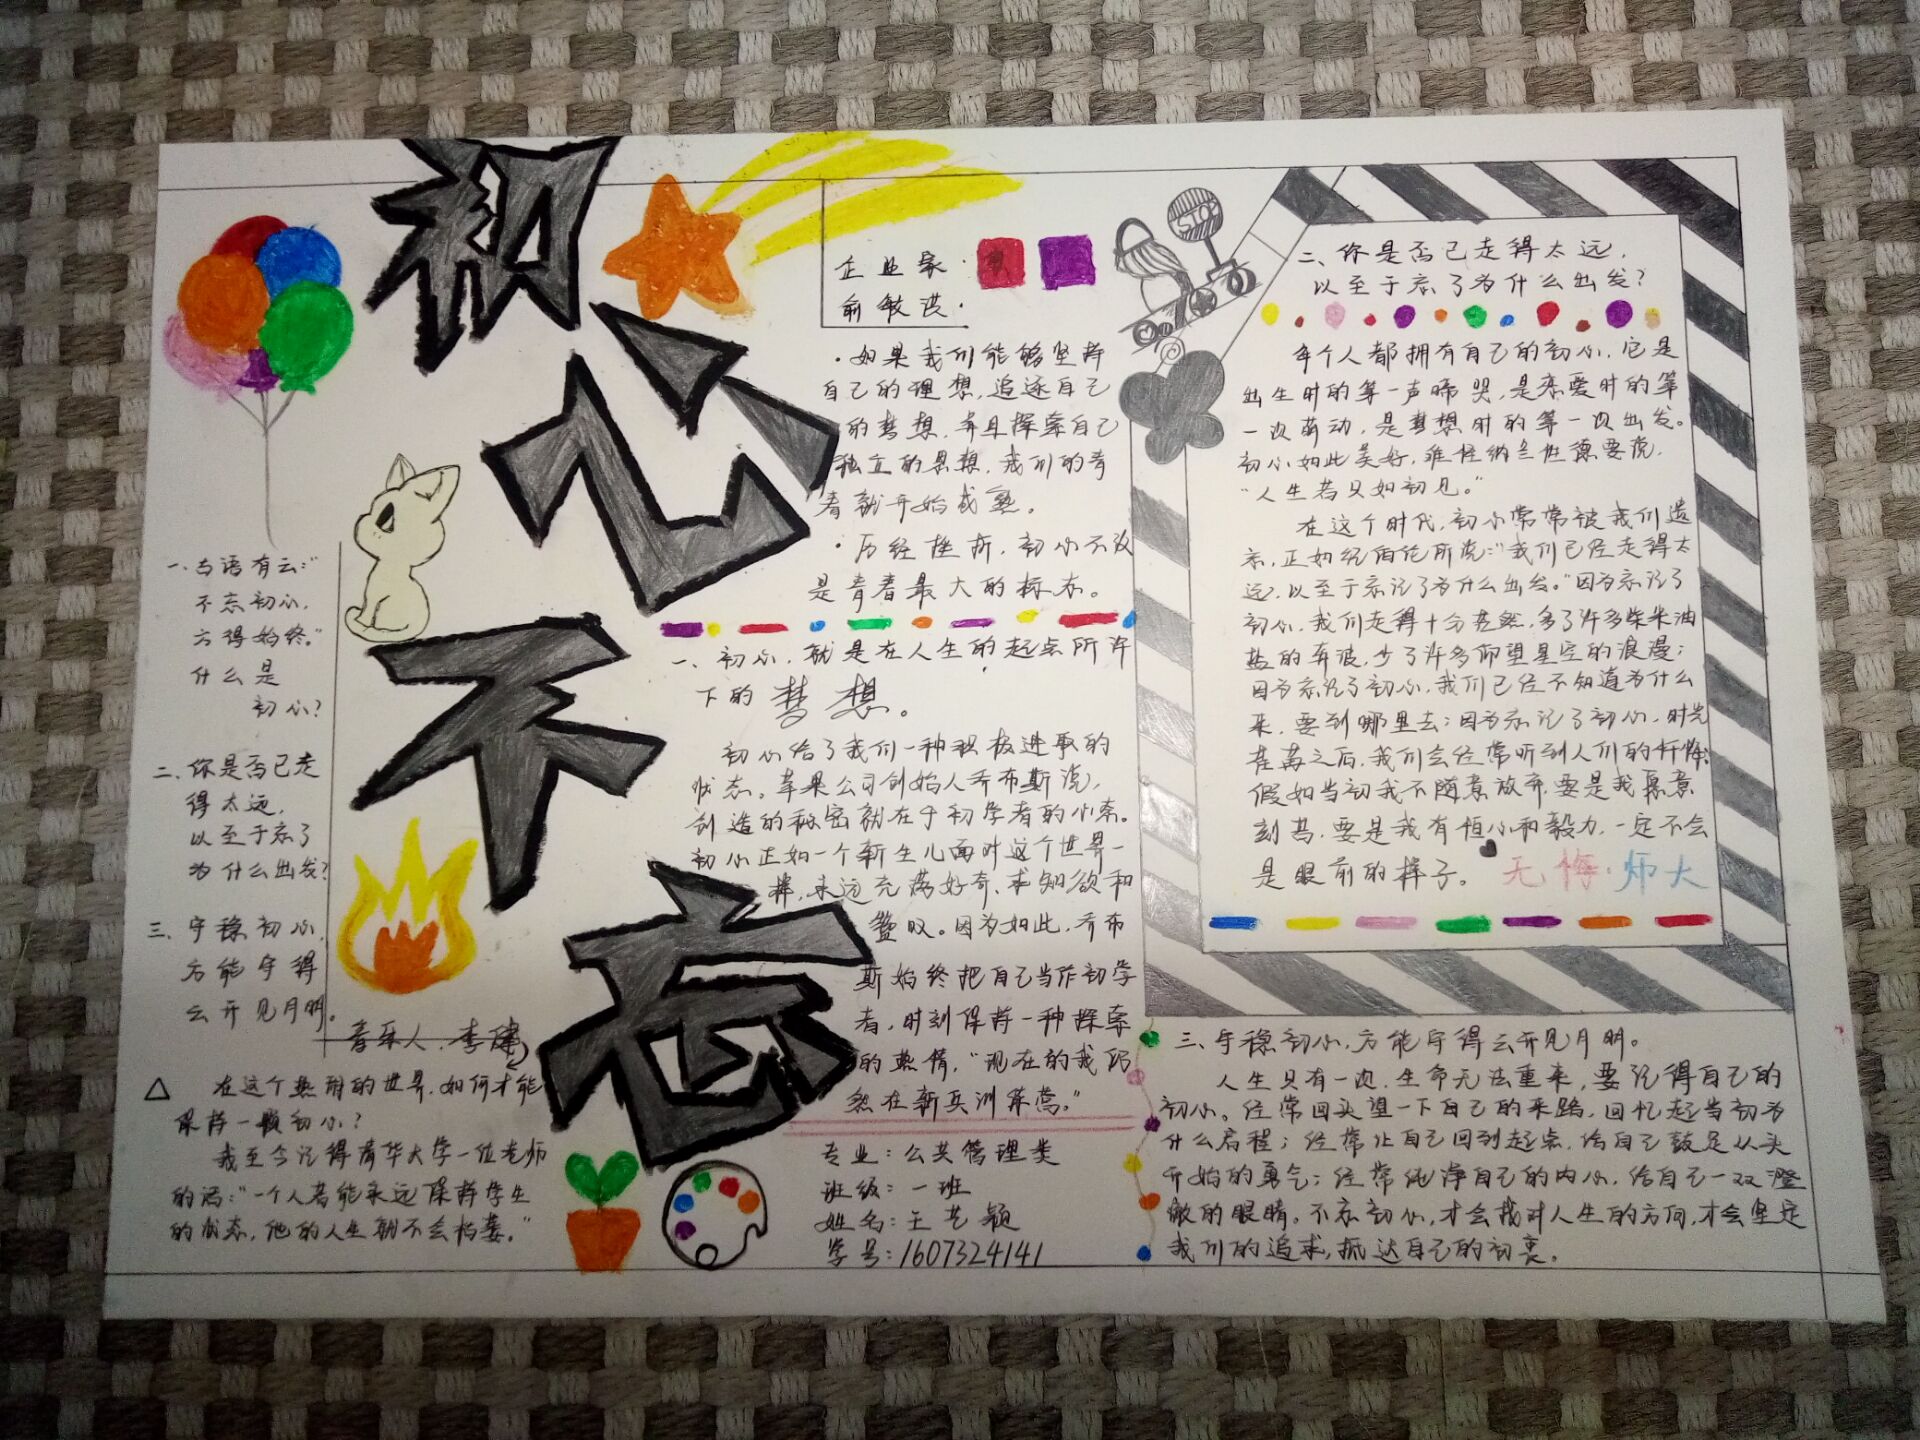 初心不忘
一、古语有云:"
不忘初心,
方得始终。"
什么是
初心?
二、你是否已走
得太远,
以至于忘了
为什么出发?
三、守稳初心,
方能守得
云开见月明。
音乐人,李健
在这个热闹的世界,如何才能
保持一颗初心?
我至今记得清华大学一位老师
的话:"一个人若能永远保持学生
的状态,他的人生朝不会枯萎。"
企业家·
俞敏洪·
·如果我们能够坚持
自己的理想,追逐自己
的梦想,并且探索自己
独立的思想,我们的青
春就开始成熟。
·历经挫折,初心不改
是青春最大的标志。
一、初心,就是在人生的起点所许
下的梦想。
初心给了我们一种积极进取的
状态。苹果公司创始人乔布斯说,
创造的秘密就在于初学者的心态。
初心正如一个新生儿面对这个世界一
样,永远充满好奇、求知欲和
赞叹。因为如此,乔布
斯始终把自己当作初学
者,时刻保持一种探索
的热情,"现在的我仍
然在新兵训练营。"
专业:公共管理类
班级:一班
姓名:王艺颖
学号:1607324141
STOP
二、你是否已走得太远,
以至于忘了为什么出发?
每个人都拥有自己的初心,它是
出生时的第一声啼哭,是恋爱时的第
一次萌动,是梦想时的第一次出发。
初心如此美好,难怪纳兰性德要说,
"人生若只如初见。"
在这个时代,初心常常被我们遗
忘,正如纪伯伦所说:"我们已经走得太
远,以至于忘记了为什么出发。"因为忘记了
初心,我们走得十分茫然,多了许多柴米油
盐的奔波,少了许多仰望星空的浪漫;
因为忘记了初心,我们已经不知道为什么
来,要到哪里去;因为忘记了初心,时光
荏苒之后,我们会经常听到人们的忏悔:
假如当初我不随意放弃,要是我愿意
刻苦,要是我有恒心和毅力,一定不会
是眼前的样子。 无悔·师大
三、守稳初心,方能守得云开见月明。
人生只有一次,生命无法重来,要记得自己的
初心。经常回头望一下自己的来路,回忆起当初为
什么启程;经常让自己回到起点,给自己鼓足从头
开始的勇气;经常纯净自己的内心,给自己一双澄
澈的眼睛。不忘初心,才会找对人生的方向,才会坚定
我们的追求,抵达自己的初衷。